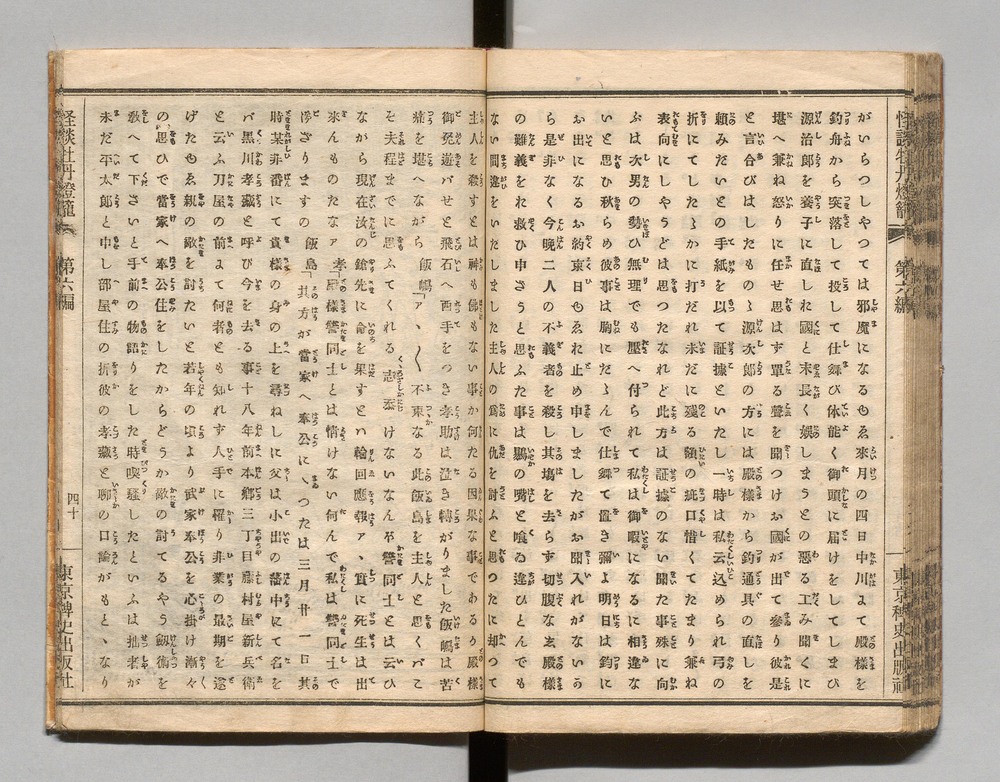 怪談牡丹燈籠 第六編 東京稗史出版社
がいらつしやつては邪魔になるもゑ來月の四日中川よて殿様を
釣舟から突落して投して仕舞ひ休能く御頭に届けをしてしまひ
源治郎を養子に直しわれ國と末長く娯しまうとの悪る工み聞くに
堪へ兼ね怒りに任せ思はす單る聲を聞つけお國が出て参り彼是
と言合ひはしたものゝ源次郎の方には殿様から釣通具の直しを
頼みだいとの手紙を以て証據といたし一時は私云込められ弓の
折にてしたゝかに打だれ未だに残る額の疵口惜くてたまり兼ね
表向にしやうとは思つたなれど此方は証據のない聞た事殊に向
ふは次男の勢ひ無理でも壓へ付られて私は御暇になるに相違な
いと思ひ秋らめ彼事は胸にだゝんで仕舞て置き彌よ明日は釣に
お出になるお約束日もゑれ止め申しましたがお聞入れがないう
ら是非なく今晩二人の不義者を殺し其塲を去らす切腹なし玄殿様
の難義をれ救ひ申さうと思ふた事は鶍の嘴と喰ゐ違ひとんでも
ない間違をいたしました主人の爲に仇を討ふと思つたに却つて
主人を殺すとは神も佛もない事か何たる因果な事であるり殿様
御免遊バせと飛石へ両手をつき孝助は泣き轉がりました飯嶋は苦
痛を堪へながら 飯嶋「アゝ〱不束なる此飯島を主人と思くバこ
そ夫程までに思ふてくれる志忝けないなんぞ讐同士とは云ひ
ながら現在汝の鎗先に命を果すとは輪回應報アゝ實に死生は出
來んものたなア 孝「殿様讐同士とは情けない何んで私は讐同士で
御ざりますの 飯島「其方が當家へ奉公にゝつたは三月廿一日其
時某非番にて貴様の身の上を尋ねしに父は小出の藩中にて名を
バ黒川孝藏と呼び今を去る事十八年前本郷三丁目藤村屋新兵衛
と云ふ刀屋の前よて何者とも知れす人手に罹り非業の最期を遂
げたもゑ親の敵を討たいと若年の頃より武家奉公を心掛け漸々
の思ひで當家へ奉公住をしたからどうか敵の討てるやう劔術を
敎へて下さいと手前の物語りをした時喫驚したといふは拙者が
未だ平太郎と申し部屋住の折彼の孝藏と聊の口論がもとゝなり
怪談牡丹燈籠 第六編 四十 東京稗史出版社